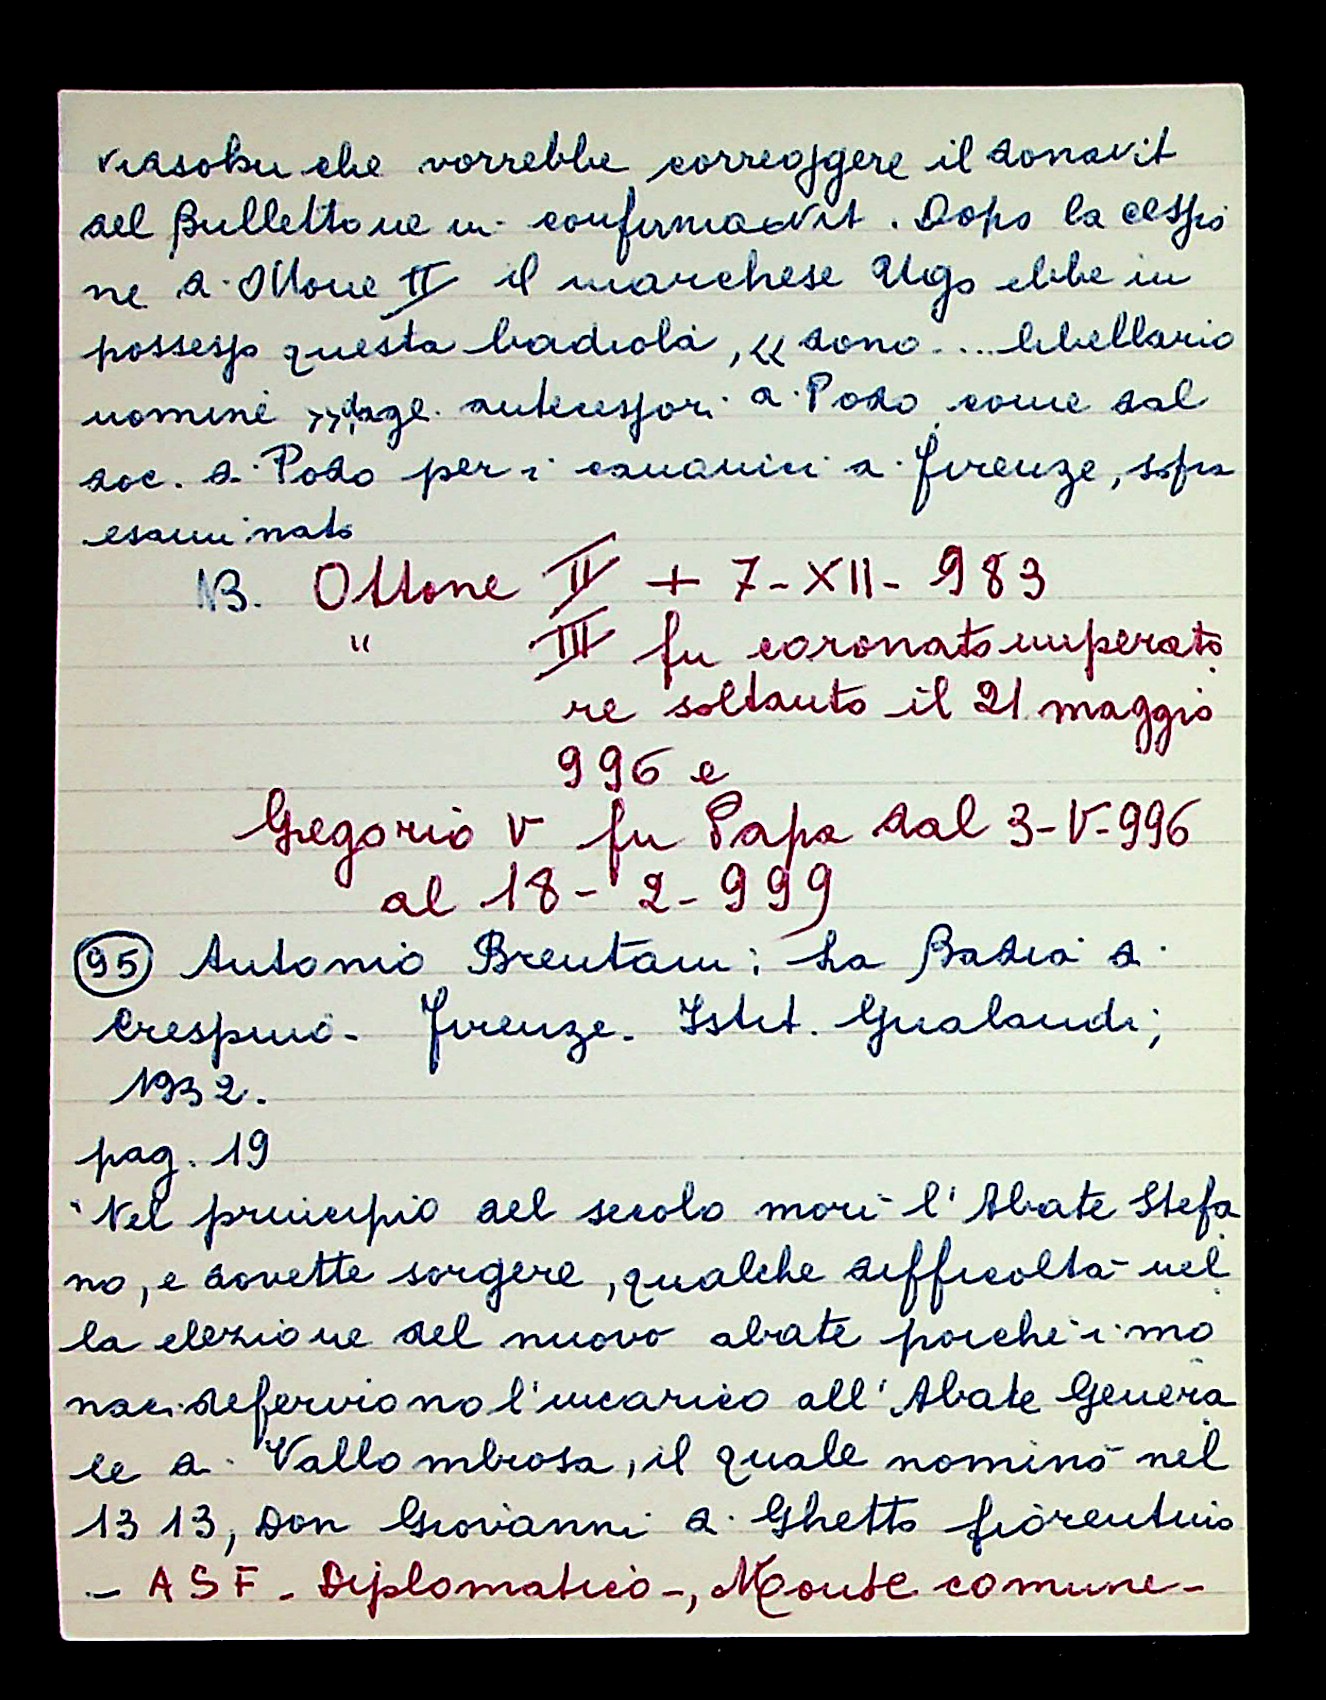 che vorrebbe correggere il donavit
del Bullettone in confirmavit. Dopo la cessio
ne di Ottone II il marchese Ugo ebbe in
possesso questa badiola, « dono .... libellario
nomine » antecessori di Podo come dal
doc. di Podo per i canonici di Firenze, sopra
esaminato
NB. Ottone II + 7-XII-983
" III fu coronato imperato
re soltanto il 21 maggio
996 e
Gregorio V fu Papa dal 3-V-996
al 18-2-999
95 Antonio Brentani: La Badia di
Crespino - Firenze. Istit. Gualandi;
1932.
pag. 19
"Nel principio del secolo morì l'Abate Stefa
no, e dovette sorgere, qualche difficoltà nel
la elezione del nuovo abate poiché i mo
naci deferirono l'incarico all'Abate Genera
le di Vallombrosa, il quale nominò nel
1313, Don Giovanni di Ghetto fiorentino
- ASF - Diplomatico -, Monte comune -